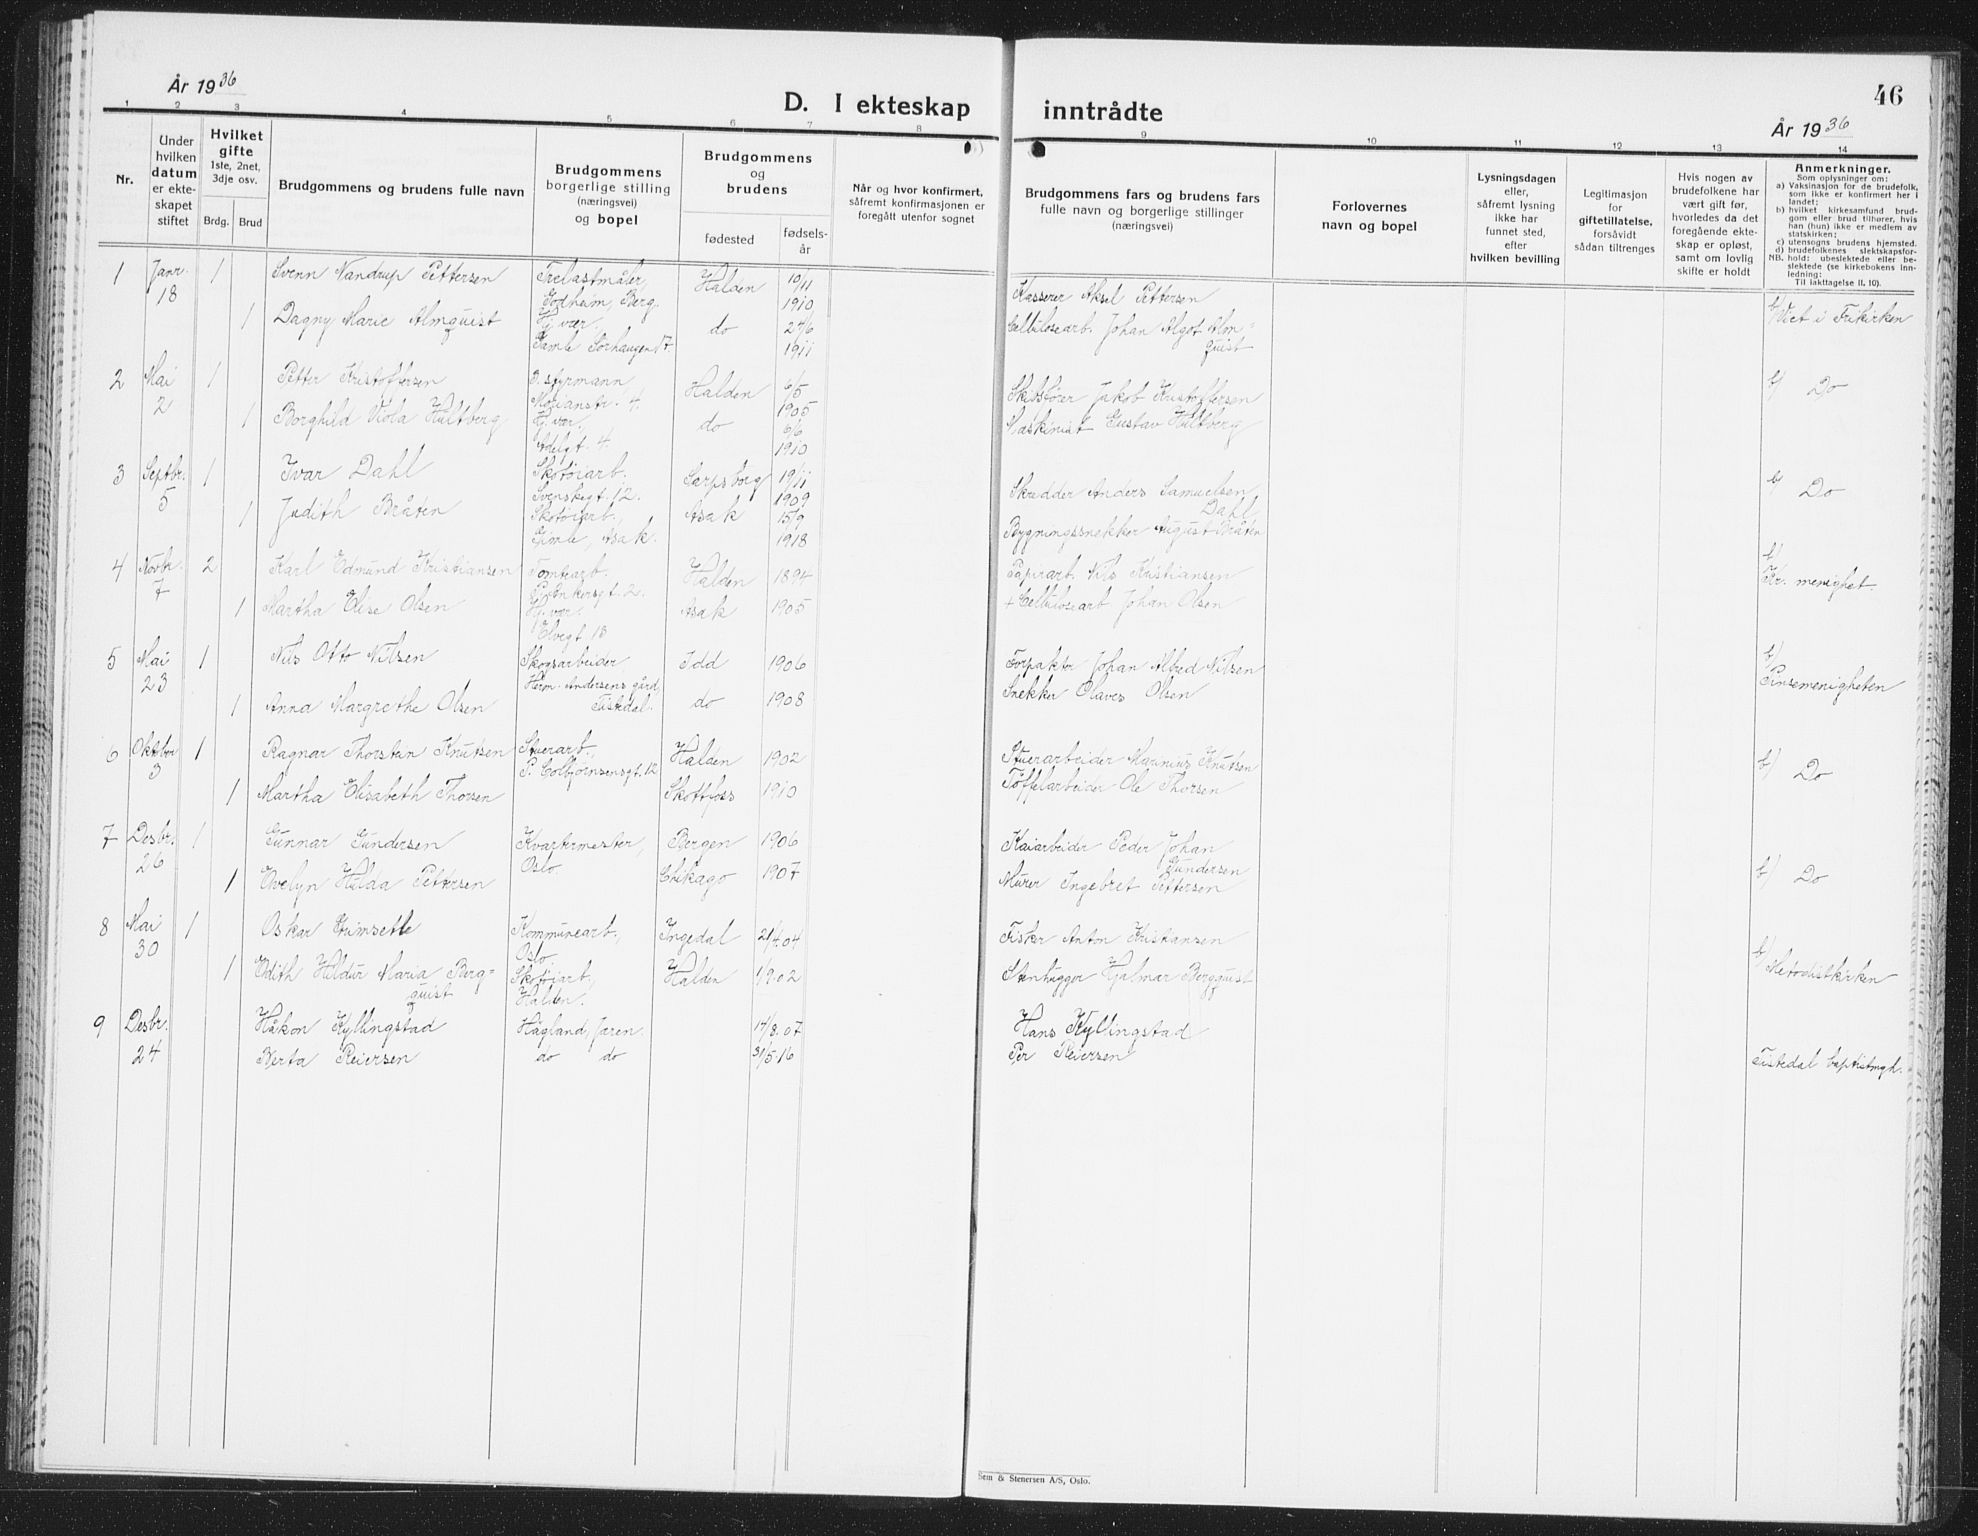 År 1936
D. I ekteskap inntrådte
46
År 1936
1 2 3 4 5 6 7 8 9 10 11 12 13 14
Nr.
Under hvilken datum er ekteskapet stiftet
Hvilket gifte
1ste, 2net, 3dje osv.
Brdg. Brud
Brudgommens og brudens fulle navn
Brudgommens borgerlige stilling (næringsvei) og bopel
Brudgommens og brudens
fødested
fødselsår
Når og hvor konfirmert, såfremt konfirmasjonen er foregått utenfor sognet
Brudgommens fars og brudens fars fulle navn og borgerlige stillinger (næringsvei)
Forlovernes navn og bopel
Lysningsdagen eller, såfremt lysning ikke har funnet sted, efter hvilken bevilling
Legitimasjon for giftetillatelse. forsåvidt sådan tiltrenges
Hvis nogen av brudefolkene har vært gift før, hvorledes da det foregående ekteskap er opløst, samt om lovlig skifte er holdt
Anmerkninger.
Som oplysninger om:
a) Vaksinasjon for de brudefolk, som ikke er konfirmert her i landet;
b) hvilket kirkesamfund brudgom eller brud tilhører, hvis han (hun) ikke er medlem av statskirken;
c) utensogns brudens hjemsted.
d) brudefolkenes slektskapsforhold: ubeslektede eller beslektede (se kirkebokens innledning;
NB.
Til iakttagelse II. 10).
1 Janr. 18 1 Svenn Nandrup Pettersen Trelastmåler, Godheim, Berg. Halden 10/11 1910 Kasserer Aksel Pettersen b) Viet i Frikirken
1 Dagny Marie Almquist Hj. vær. Gamle Sørhaugen 17. do 24/6 1911 Cellulosearb. Johan Algot Almquist
2 Mai 2 1 Petter Kristoffersen 2. styrmann 4. Halden 6/5 1905 Jakob Kristoffersen b) Do
1 Borghild Viola Hultberg Hj. vær. Adelgt. 4 do 6/6 1910 Maskinist Gustav Hultberg
3 Septbr. 5 1 Ivar Dahl Skotøiarb. Svenskegt. 12. Sarpsborg 19/11 1909 Skredder Anders Samuelsen Dahl b) Do
1 Judith Bråten Skotøiarb., Gimle, Asak. Asak 15/9 1918 Bygningssnekker August Bråten
4 Novbr. 7 2 Karl Edmund Kristiansen Tomtearb. Halden 1894 Papirarb. Nils Kristiansen b) Fr. menighet.
1 Martha Elise Olsen Hj. vær. Elvegt. 18 Asak 1905 + Cellulosearb Johan Olsen
5 Mai 23 1 Nils Otto Nilsen Skogsarbeider Herm. Andersens gård, Tistedal. Idd 1906 Forpakter Johan Alfred Nilsen b) Pinsemenigheten
1 Anna Margrethe Olsen do 1908 Snekker Olaves Olsen
6 Oktober 3 1 Ragnar Thorstein Knutsen Stuerarb. P. Colbjørnsensgt. 12 Halden 1902 Stuerarbeider Marinius Knutsen b) Do
1 Martha Elisabeth Thorsen Skotfoss 1910 Tøffelarbeider Ole Thorsen
7 Desbr. 26 1 Gunnar Gundersen Kvartermester, Oslo. Bergen 1906 Kaiarbeider Peder Johan Gundersen
1 Evelyn Hilda Pettersen Chikago 1907 Murer Ingebret Pettersen b) Do
8 Mai 30 1 Oskar Grimsetle Kommunearb., Oslo Ingedal 21/4.04 Fisker Anton Kristiansen
1 Edith Hildur Maria Bergquist Skotøiarb., Halden. Halden 1/9.02 Stenhugger Hjalmar Bergquist b) Metodistkirken
9 Desbr. 24 Håkon Kyllingstad Høgland, Jæren. 14/8.07 Hans Kyllingstad
Berta Reiersen do do 31/5.16 Per Reiersen Tistedal baptistmgh.
Sem & Stenersen A/S, Oslo.